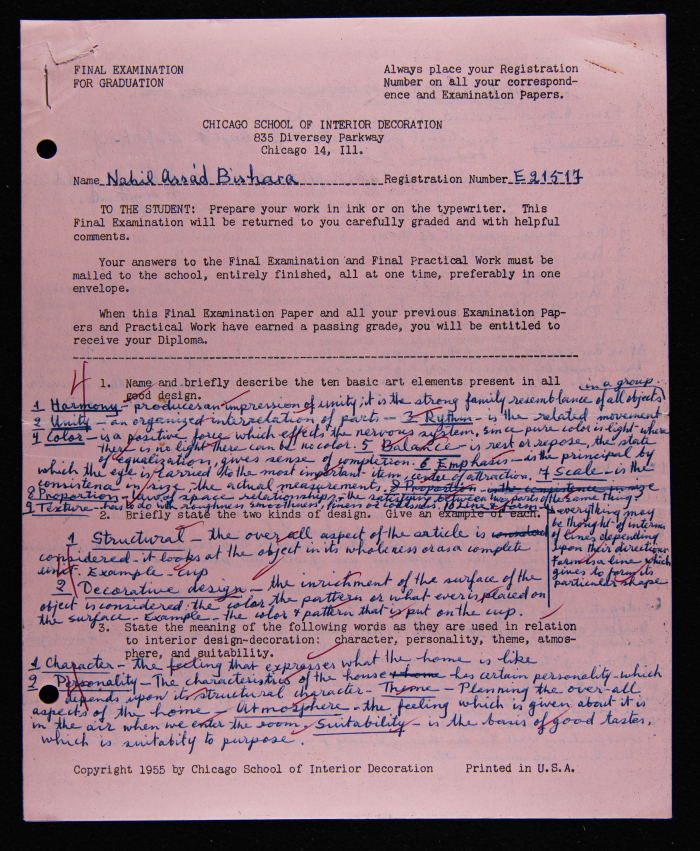 FINAL EXAMINATION
FOR GRADUATION
Always place your Registration
Number on all your correspond-
ence and Examination Papers.
CHICAGO SCHOOL OF INTERIOR DECORATION
835 Diversey Parkway
Chicago 14, Ill.
Name Nabil Assád Bishara Registration Number E21517
TO THE STUDENT: Prepare your work in ink or on the typewriter. This
Final Examination will be returned to you carefully graded and with helpful
comments.
Your answers to the Final Examination and Final Practical Work must be
mailed to the school, entirely finished, all at one time, preferably in one
envelope.
When this Final Examination Paper and all your previous Examination Pap-
ers and Practical Work have earned a passing grade, you will be entitled to
receive your Diploma.
1. Name and briefly describe the ten basic art elements present in all
good design.
in a group.
1 Harmony - produces an impression of unity; it is the strong family resemblance of all objects
2 Unity - an organized interrelation of parts - 3 Rythm - is the related movement
4 Color - is a positive force which effects the nervous system, since pure color is light - where
there is no light there can be no color. 5 Balance - is rest or repose, the state
of equalization, gives sense of completion. 6 Emphasis - is the principal by
which the eye is carried to the most important item, center of attraction. 7 Scale - is the
consistena in size, the actual measurement. 8 Proportion - the consistence in size
8 Proportion - laws of space relationships - the satisfying between two parts of the same thing
9 Texture - has to do with roughness smoothness, fineness or coarseness. 10 Line & form -
everything may
be thought of in terms
of lines depending
upon their direction
Form is a line which
gives to form its
particular shape
2. Briefly state the two kinds of design. Give an example of each.
1 Structural - the over all aspect of the article is
considered - it looks at the object in its wholeness or as a complete
unit. Example - cup
2 Decorative design - the inrichment of the surface of the
object is considered: the color, the pattern or what ever is placed on
the surface. Example - the color & pattern that is put on the cup.
3. State the meaning of the following words as they are used in relation
to interior design-decoration: character, personality, theme, atmos-
phere, and suitability.
1 Character - the feeling that expresses what the home is like
2 Personality - The characteristics of the house & home has certain personality - which
depends upon its structural character - Theme - Planning the over-all
aspects of the home - Atmosphere - the feeling which is given about it is
in the air when we enter the room - Suitability - is the basis of good tastes,
which is suitabity to purpose.
Copyright 1955 by Chicago School of Interior Decoration Printed in U.S.A.